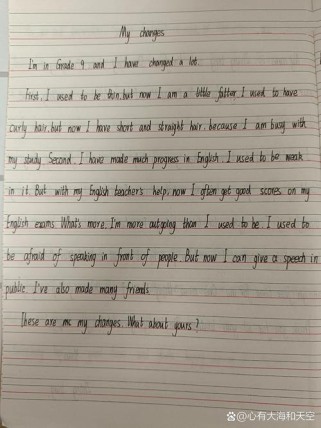 My changes
I'm in Grade 9 and I have changed a lot.
First, I used to be thin, but now I am a little fatter I used to have
curly hair, but now I have short and straight hair, because I am busy with
my study Second, I have made much progress in English. I used to be weak
in it. But with my English teacher's help, now I often get good scores on my
English exams. What's more, I'm more outgoing than I used to be. I used to
be afraid of speaking in front of people But now I can give a speech in
public I've also made many friends.
These are my changes. What about yours?
@心有大海和天空